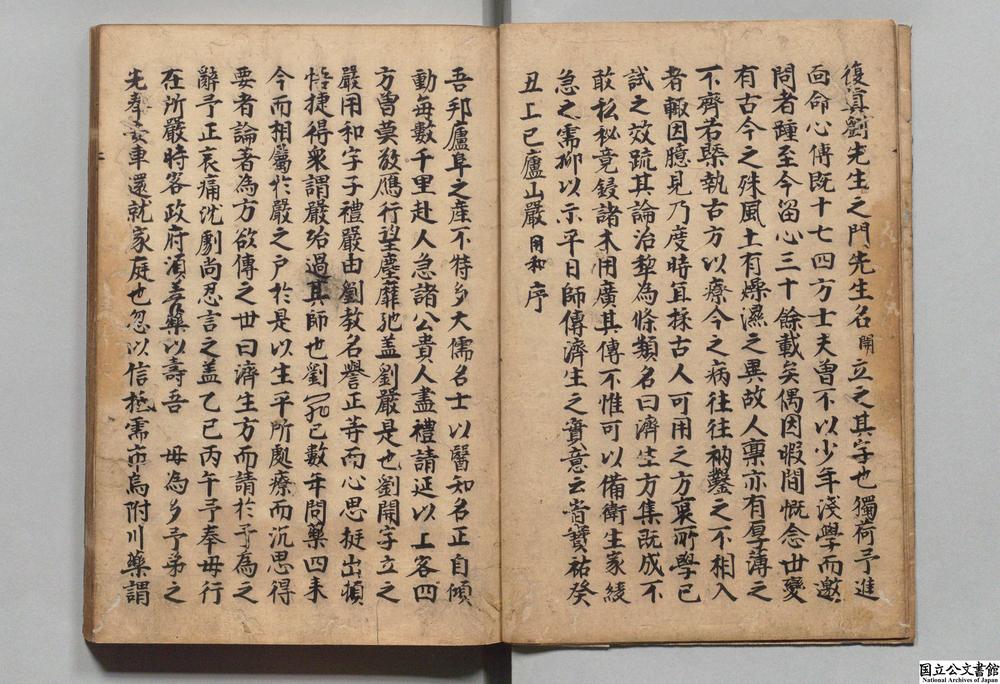 復真劉先生之門先生名開立之其字也獨荷予進
面命心傳既十七四方士夫曽不以少年淺學而邀
問者踵至今留心三十餘載矣偶因暇間慨念世變
有古今之殊風土有燥濕之異故人稟亦有厚薄之
不齊若槩執古方以療今之病往往枘鑿之不相入
者輙因臆見乃度時宜採古人可用之方裒所學已
試之效疏其論治犁為條類名曰濟生方集既成不
敢私秘竟鋟諸木用廣其傳不惟可以備衛生家緩
急之需抑以示平日師傳濟生之實意云旹寶祐癸
丑上巳廬山嚴用和序
吾邦廬阜之産不特多大儒名士以醫知名正自傾
動每數千里赴人急諸公貴人盡禮請延以上客四
方曽莫敢鴈行望塵靡
盖劉嚴是也劉開字立之
嚴用和字子禮嚴由劉教名譽正等而心思挺出頴
悟捷得衆謂嚴殆過其師也劉
已數年問藥四来
今而相屬於嚴之户於是以生平所處療而沉思得
要者論著為方欲傳之世曰濟生方而請於予為之
辭予正哀痛沈劇尚忍言之盖乙巳丙午予奉母行
在所嚴時客政府湏善藥以壽吾 母為多予弟之
先奉
車還就家庭也忽以信抵需市烏附川藥謂
国立公文書館
National Archives of Japan